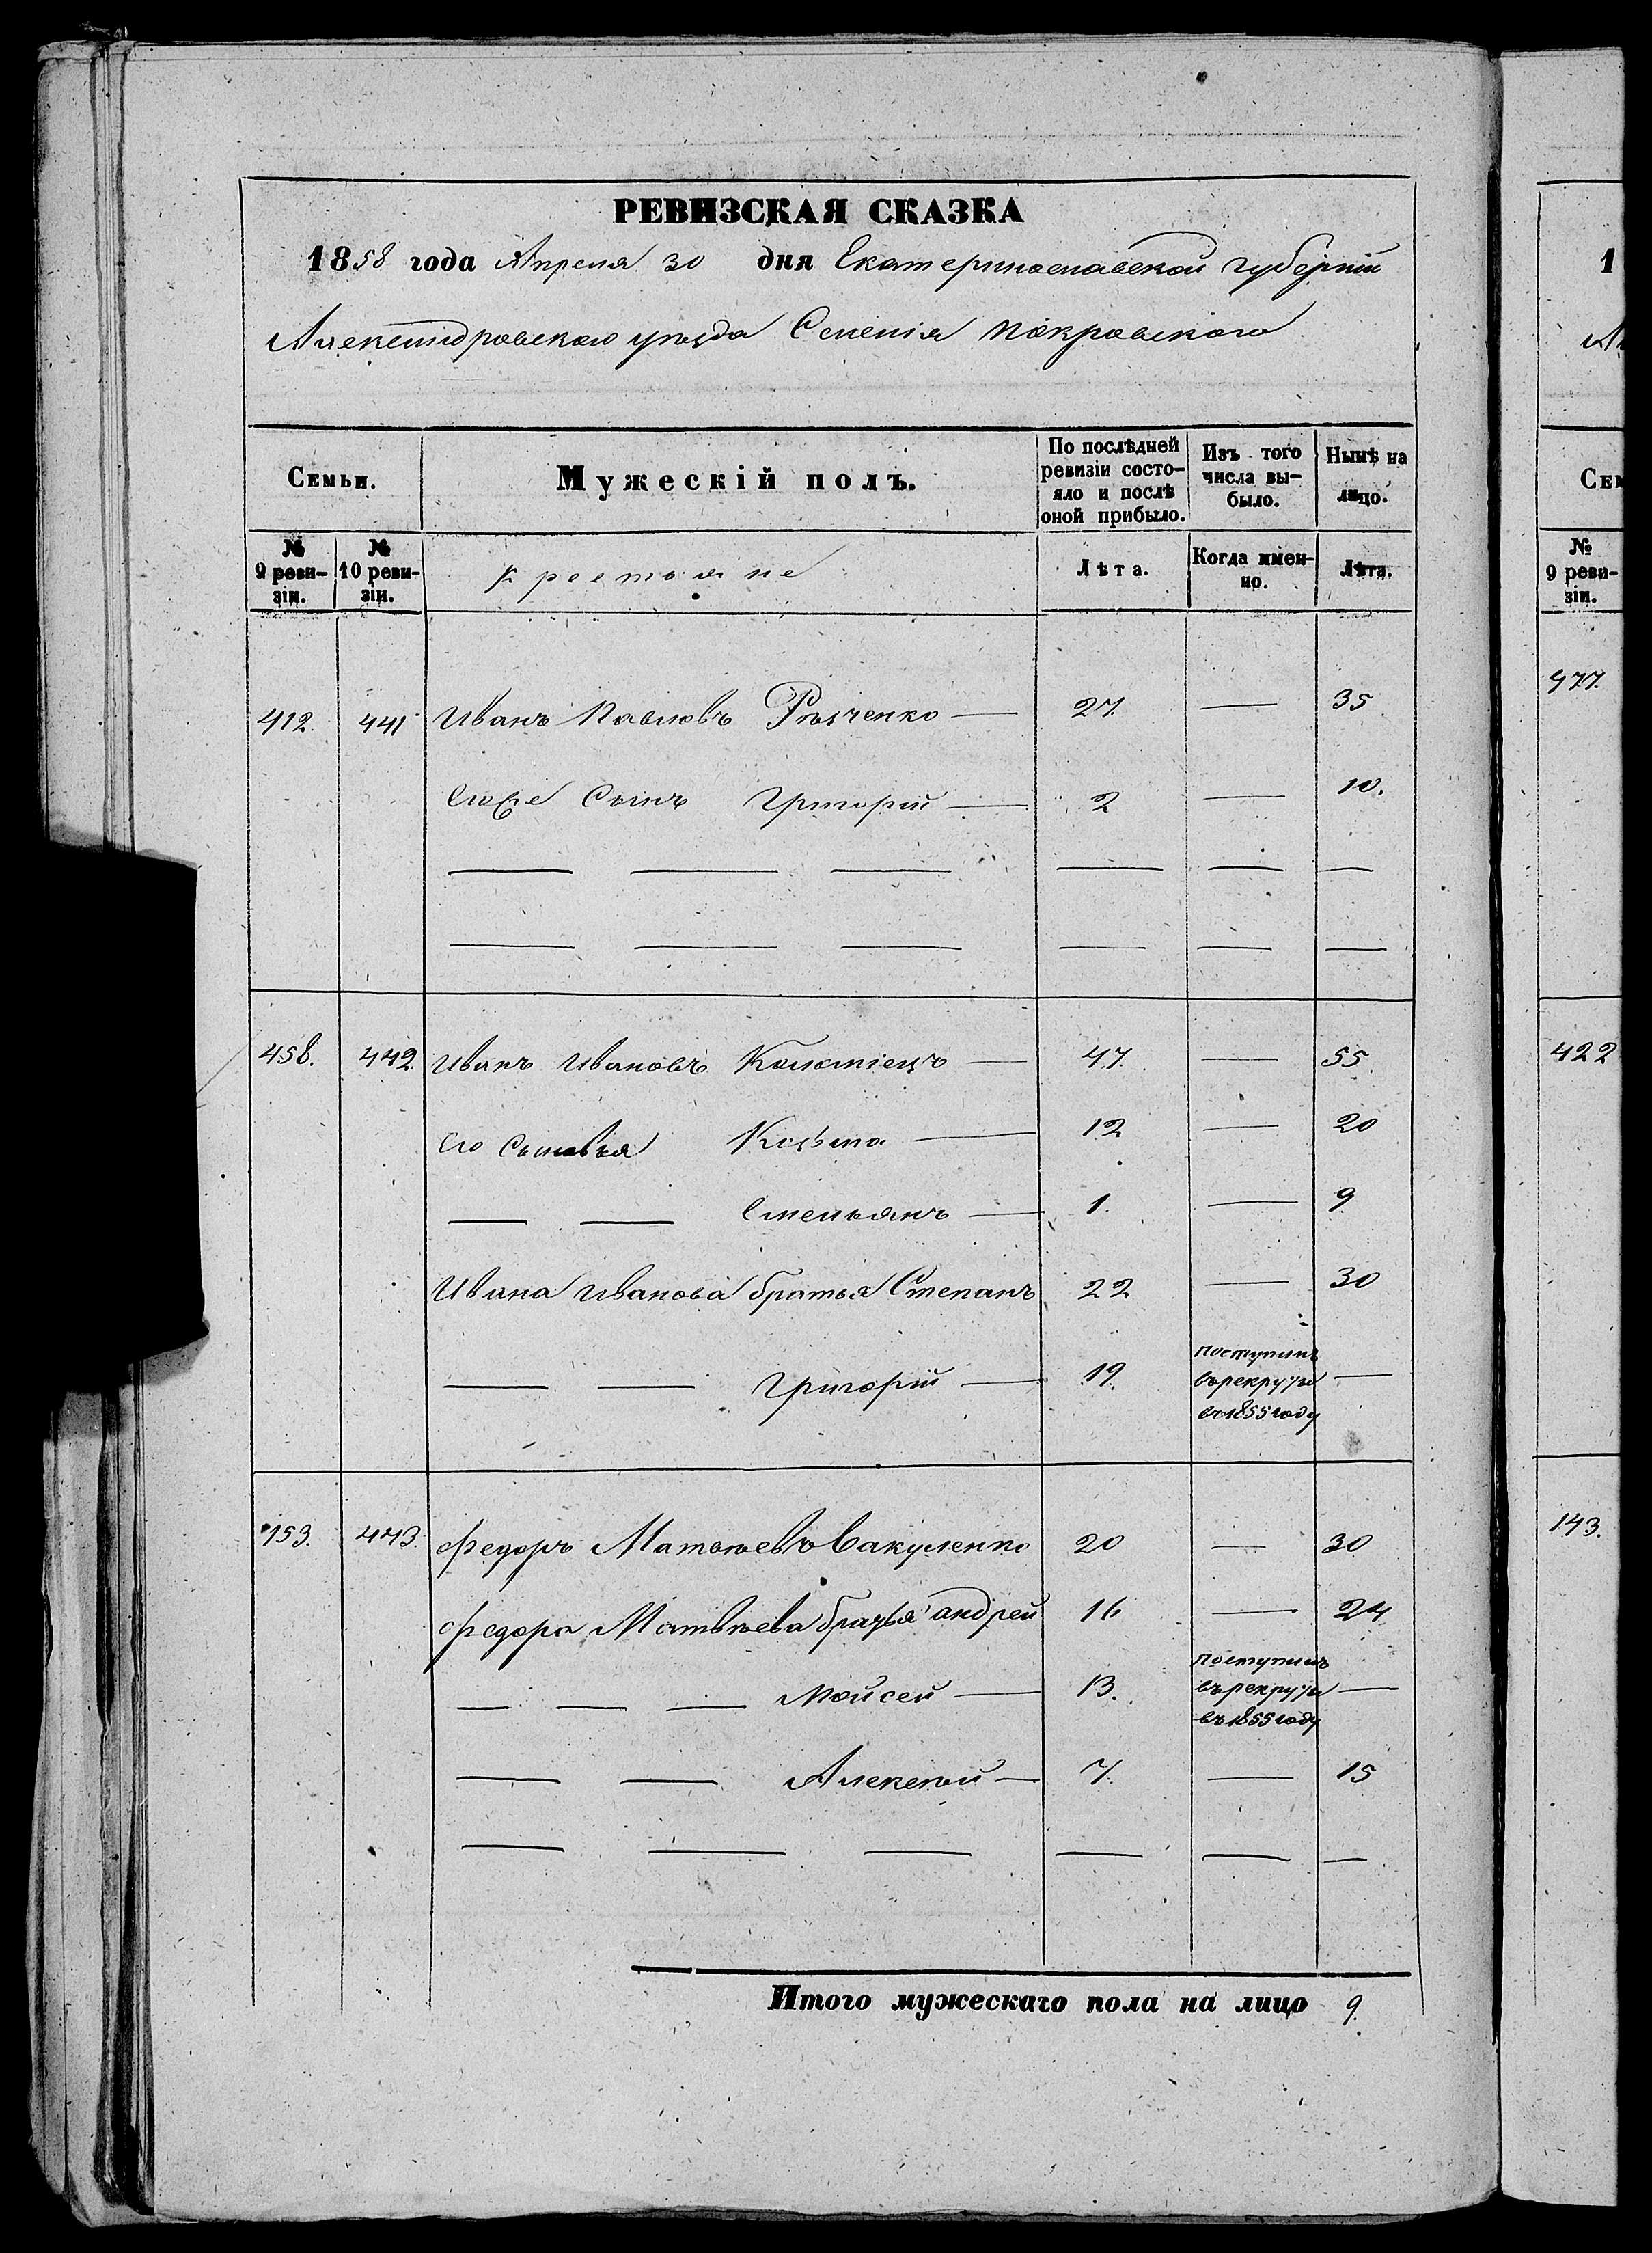 РЕВИЗСКАЯ СКАЗКА
1858 года Апреля 30 дня Екатеринославской губерніи
Александровскаго уѣзда Селенія Покровскаго
Семьи.
Мужескій полъ.
По послѣдней ревизіи состо-
яло и послѣ оной прибыло.
Изъ того числа вы-
было.
Нынѣ на лицо.
№ 9 реви-
зіи.
№ 10 реви-
зіи.
Крестьяне
Лѣта.
Когда имен-
но.
Лѣта.
412. 441 Иванъ Павловъ — 27. — 35
Сынъ Григорій — 2 — 10.
458. 442. Иванъ Ивановъ Коломіецъ — 47. — 55
его Сыновья Козьма — 12 — 20
— — Емельянъ — 1. — 9
Ивана Иванова братья Степанъ 22 — 30
— — Григорій — 19. поступилъ
въ рекруты —
въ 1855 году
153. 443. Федоръ Матвѣевъ Вакуленко 20 — 30
Федора Матвѣева братья андрей 16 — 24
— — — Мойсей — 13. поступилъ
въ рекруты —
въ 1855 году
— — Алексѣй — 7. — 15
Итого мужескаго пола на лицо 9.
1
А
Сем
№
9 реви-
зіи.
477.
422
143.